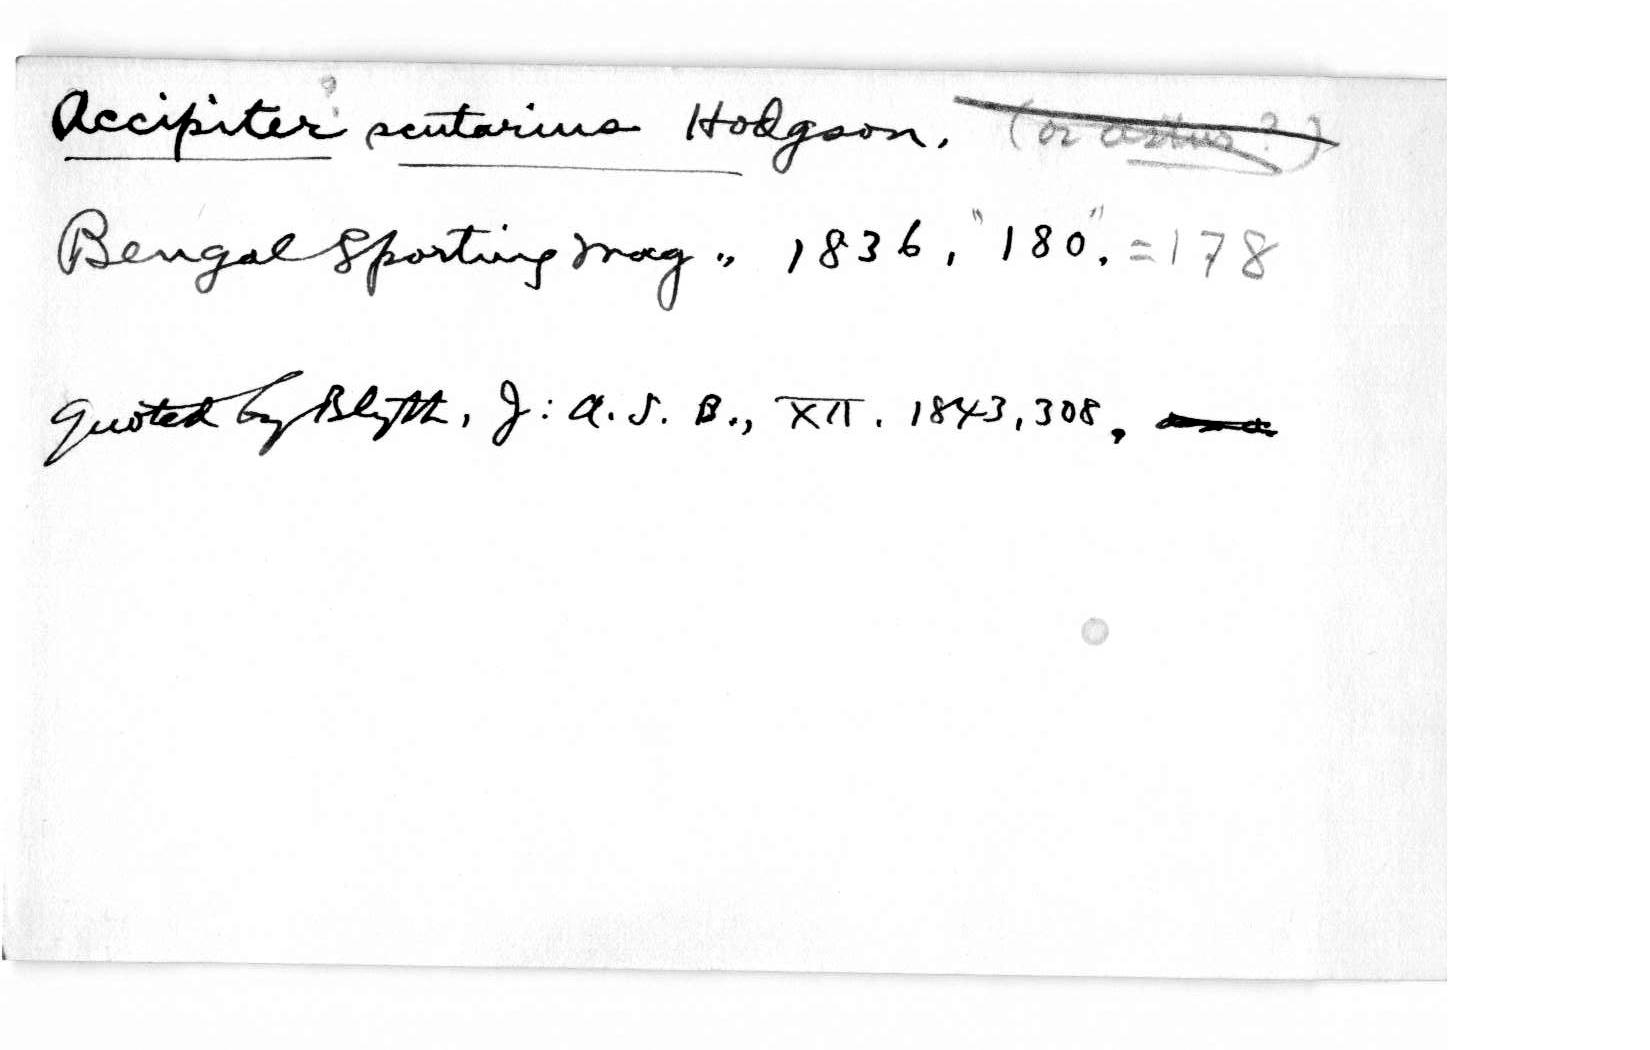 Accipiter? scutarius Hodgson. (or Astur?)
Bengal Sporting Mag., 1836, "180". =178
quoted by Blyth, J: A. S. B., XII. 1843, 308,